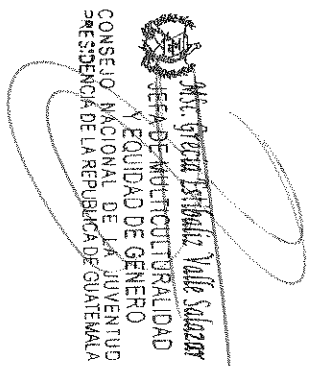 Msc. Gracia Estibaliz Valle Salazar
JEFA DE MULTICULTURALIDAD
Y EQUIDAD DE GENERO
CONSEJO NACIONAL DE LA JUVENTUD
PRESIDENCIA DE LA REPUBLICA DE GUATEMALA